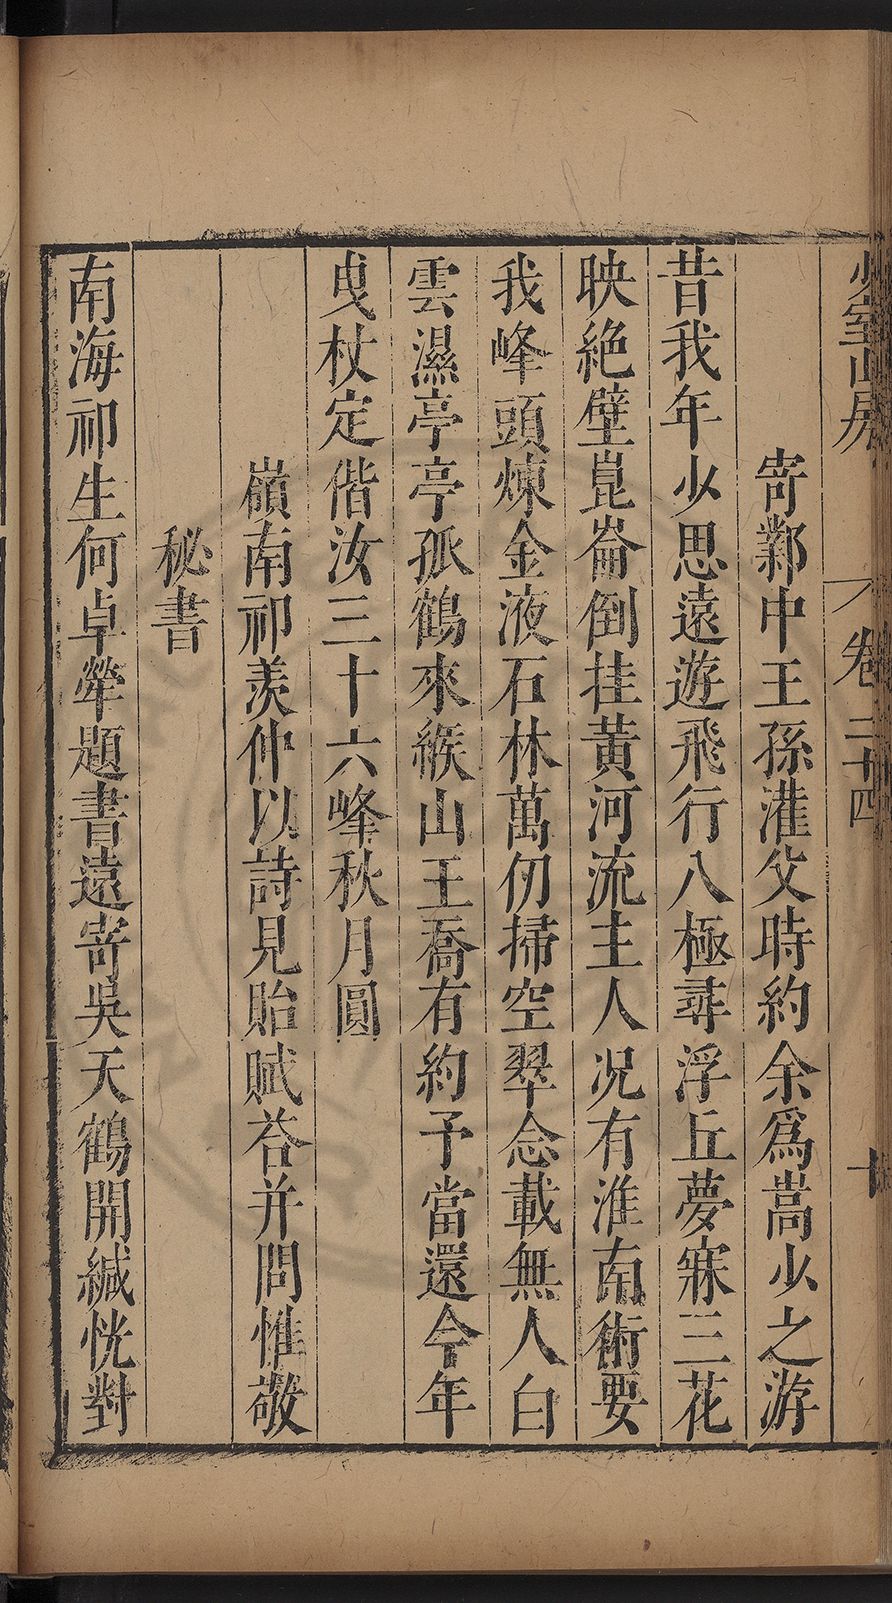 少室山房
卷二十四
十
寄鄴中王孫灌父時約余爲嵩少之游
昔我年少思遠遊飛行八極尋浮丘夢寐三花
映絶壁崑崙倒挂黄河流主人况有淮南術要
我峰頭煉金液石林萬仞掃空翠念載無人白
雲濕亭亭孤鶴來緱山王喬有約予當還今年
曳杖定偕汝三十六峰秋月圓
嶺南祁羨仲以詩見貽賦荅并問惟敬
秘書
南海祁生何卓犖題書遠寄吳天鶴開緘恍對